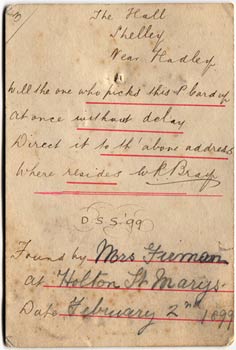 The Hall
Shelley
Near Hadley
Will the one who picks this P Card up
At once without delay
Direct it to th' above address
Where resides W R Bray
D S S '99
Found by Mrs Freeman
at Holton St Marys.
Date February 2nd 1899